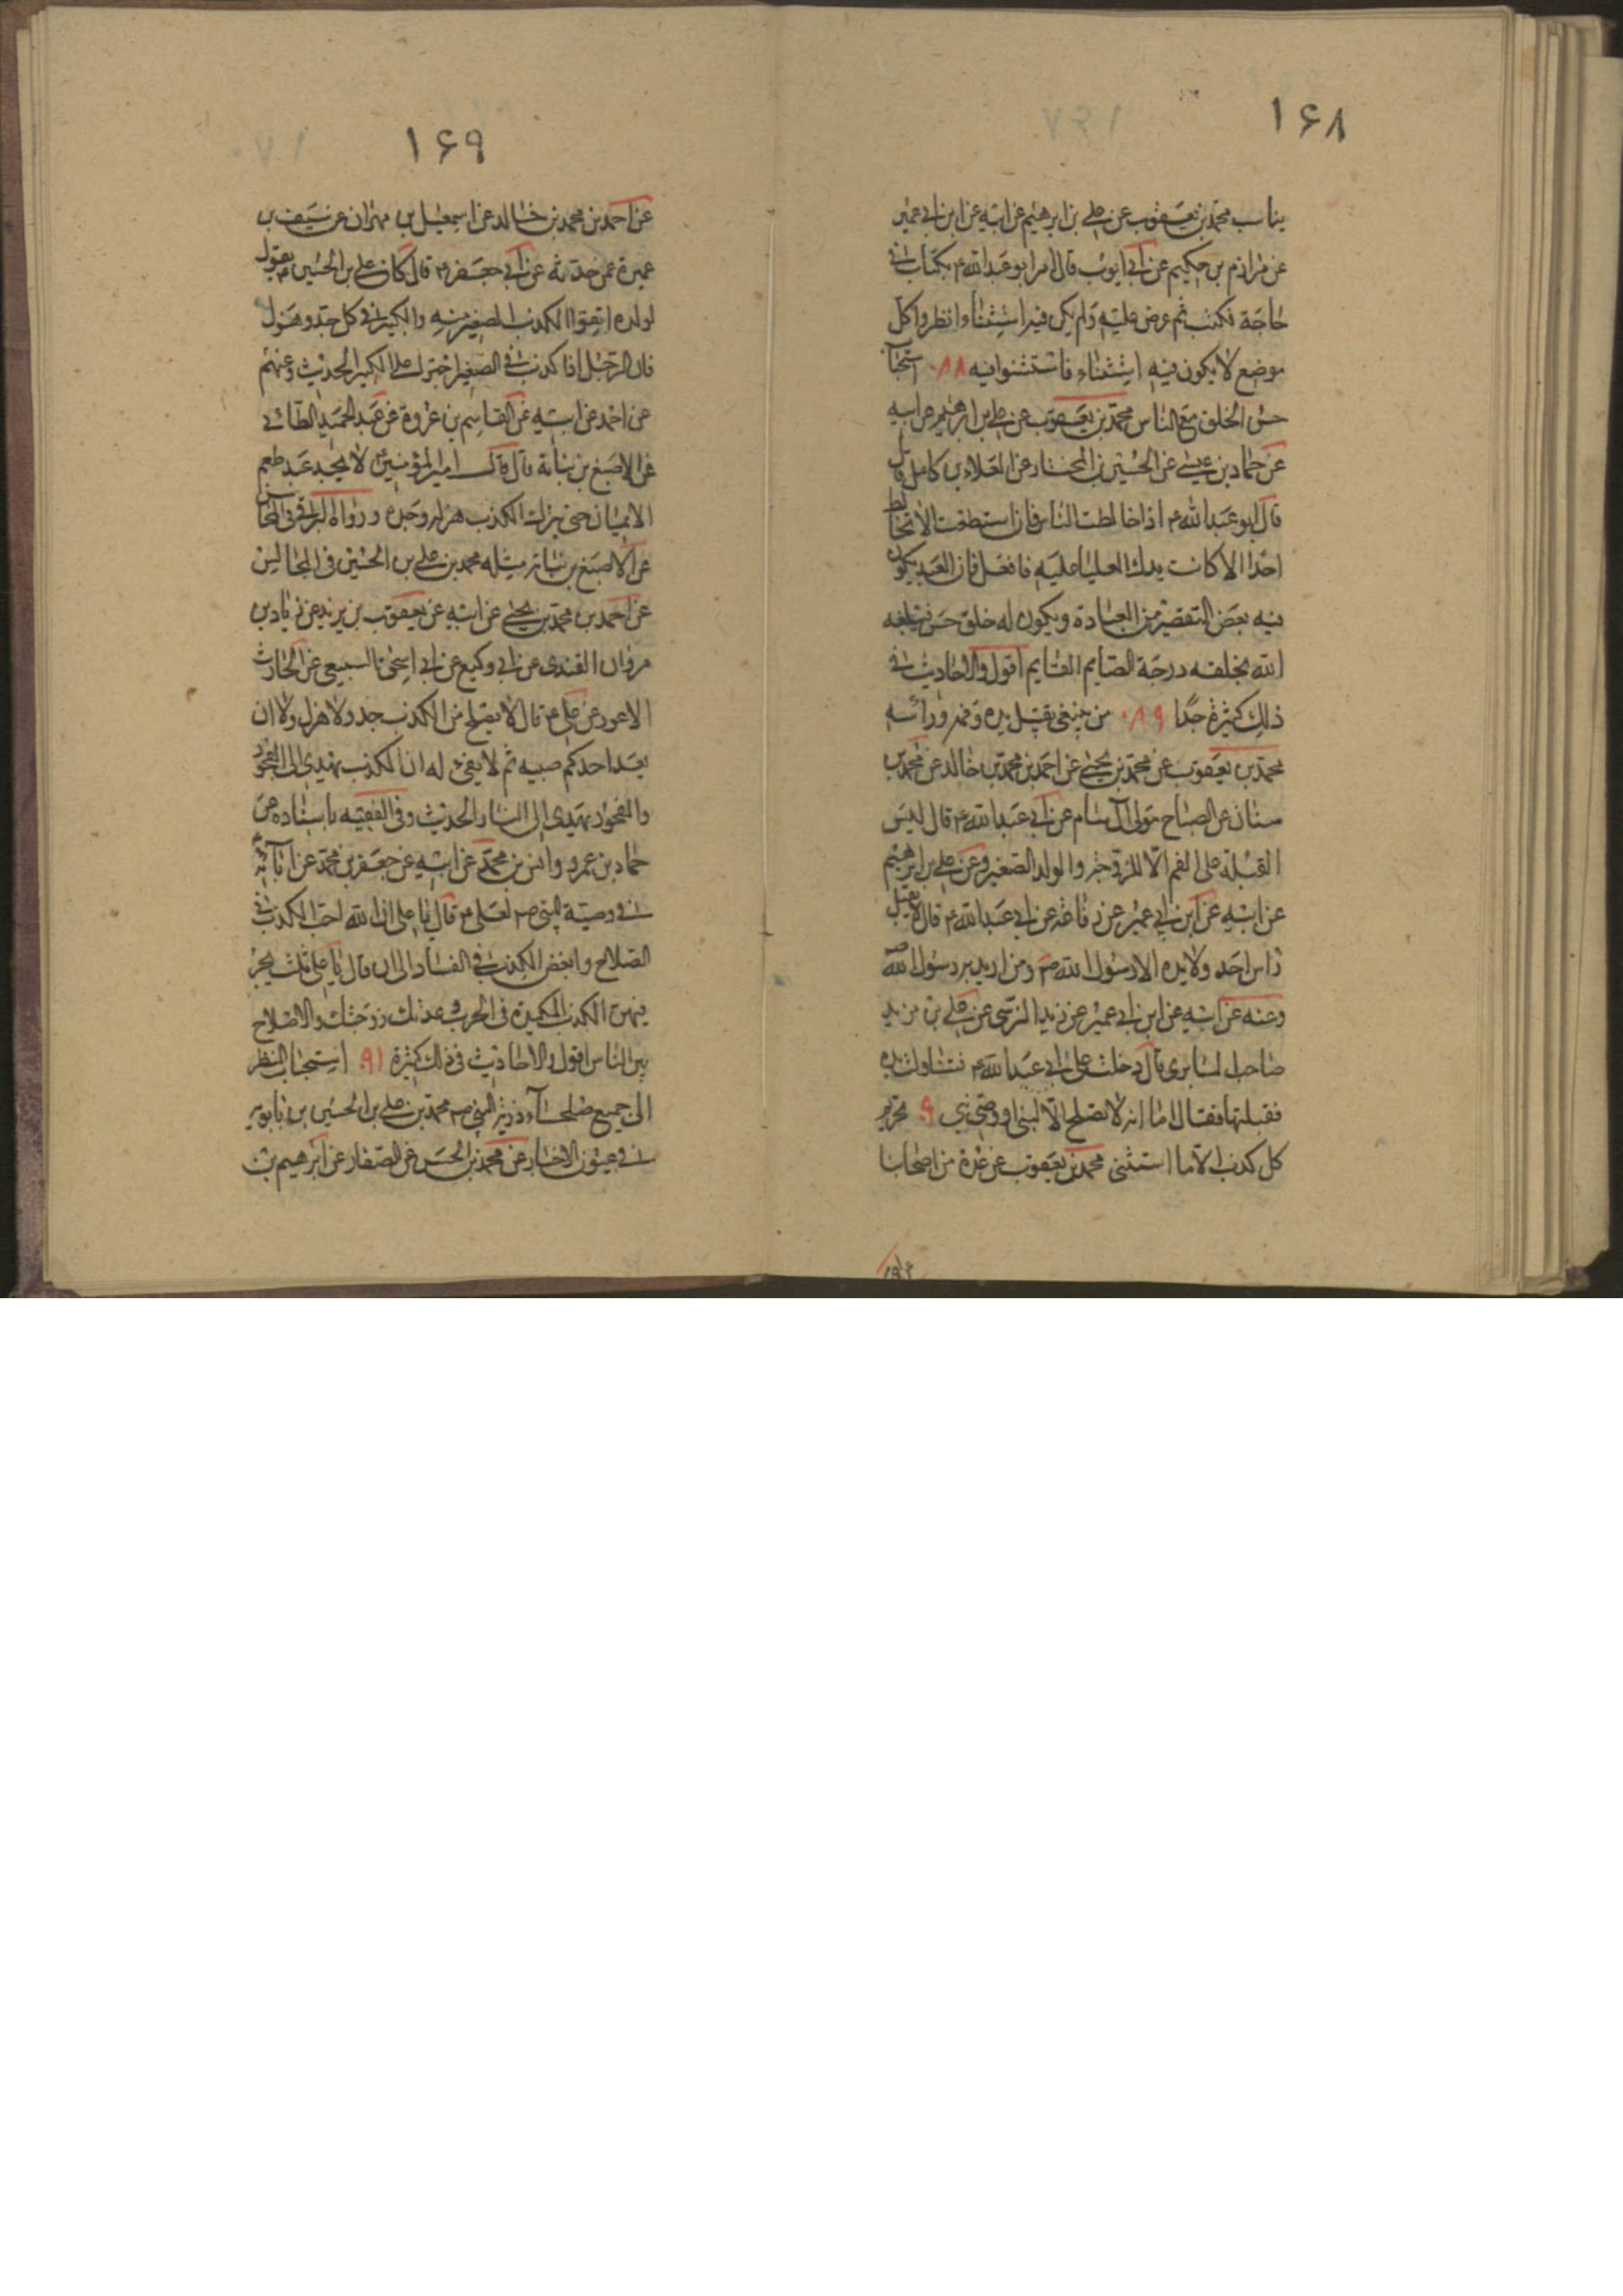 ۱۶۸
يناسب محمد بن يعقوب عن علي بن ابرهيم عن ابيه عن ابن ابي عمير
عن مرازم بن حكيم عن ابي ايوب قال امر ابو عبد الله ع بكتاب في
حاجة فكتب ثم عرض عليه ولم يكن فيه استثناء انظروا كل
موضع لا يكون فيه استثناء فاستثنوا فيه ۰۸۸
حسن الخلق مع الناس محمد بن يعقوب عن علي بن ابرهيم عن ابيه
عن حماد بن عيسى عن الحسين بن المختار عن العلاء بن كامل قال
قال ابو عبد الله ع اذا خالطت الناس فان استطعت الا تخالط
احدا الا كانت يدك العليا عليه فافعل فان العبد يكون
فيه بعض التقصير من العبادة ويكون له خلق حسن فيبلغه
الله بخلقه درجة الصايم القايم اقول والاحاديث في
ذلك كثيرة جدا ۰۸۹ من ينبغي تقبيل يده وفمه ورأسه
محمد بن يعقوب عن محمد بن يحيى عن احمد بن محمد بن خالد عن محمد بن
سنان عن الصباح مولى آل سام عن ابي عبد الله ع قال ليس
القبلة على الفم الا للزوجة والولد الصغير وعن علي بن ابرهيم
عن ابيه عن ابن ابي عمير عن رفاعة عن ابي عبد الله ع قال لا يقبل
راس احد ولا يده الا رسول الله ص ومن اريد به رسول الله ص
وعنه عن ابيه عن ابن ابي عمير عن زيد النرسي عن علي بن مزيد
صاحب السابري قال دخلت على ابي عبد الله ع فتناولت يده
فقبلتها فقال اما انه لا تصلح الا لنبي او وصي نبي ۹۰ تحريم
كل كذب الا ما استثني محمد بن يعقوب عن عدة من اصحابنا
۱۶۹
عن احمد بن محمد بن خالد عن اسمعيل بن مهران عن سيف بن
عميرة عمن حدثه عن ابي جعفر ع قال كان علي بن الحسين ع يقول
لولده اتقوا الكذب الصغير منه والكبير في كل جد وهزل
فان الرجل اذا كذب في الصغير اجترى على الكبير الحديث وعنهم
عن احمد عن ابيه عن القاسم بن عروة عن عبد الحميد الطائي
عن الاصبغ بن نباتة قال قال امير المؤمنين ع لا يجد عبد طعم
الايمان حتى يترك الكذب هزله وجده ورواه البرقي في المحاسن
عن الاصبغ بن نباتة مثله محمد بن علي بن الحسين في المجالس
عن احمد بن محمد بن يحيى عن ابيه عن يعقوب بن يزيد عن زياد بن
مروان القندي عن ابي وكيع عن ابي اسحق السبيعي عن الحارث
الاعور عن علي ع قال لا يصلح من الكذب جد ولا هزل ولا ان
يعد احدكم صبيه ثم لا يفي له ان الكذب يهدي الى الفجور
والفجور يهدي الى النار الحديث وفي الفقيه باسناده عن
حماد بن عمرو وانس بن محمد عن ابيه عن جعفر بن محمد عن آبائه
في وصية النبي ص لعلي ع قال يا علي ان الله احب الكذب في
الصلاح وابغض الكذب في الفساد الى ان قال يا علي ثلث يحسن
فيهن الكذب المكيدة في الحرب وعدتك زوجتك والاصلاح
بين الناس اقول والاحاديث في ذلك كثيرة ۹۱ استحباب النظر
الى جميع صلحاء ذرية النبي ص محمد بن علي بن الحسين بن بابويه
في عيون الاخبار عن محمد بن الحسن عن الصفار عن ابرهيم بن